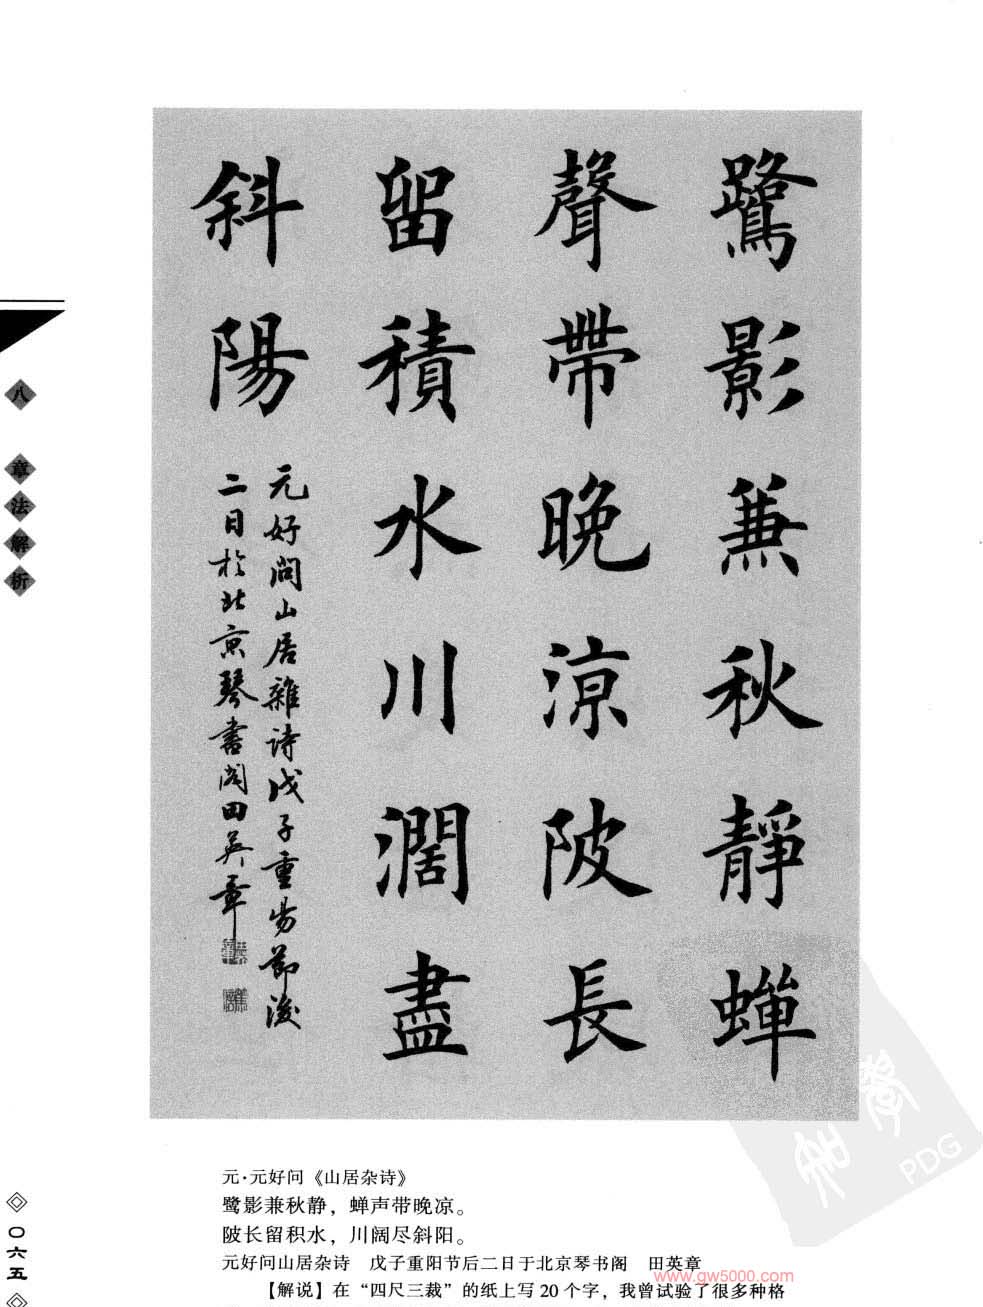 鷺影兼秋靜蟬
聲帶晚涼陂長
留積水川濶盡
斜陽
元好問山居雜诗戊子重阳節後
二日於北京琴書阁田英章
八 章法解析
元·元好问《山居杂诗》
鹭影兼秋静，蝉声带晚凉。
陂长留积水，川阔尽斜阳。
元好问山居杂诗　戊子重阳节后二日于北京琴书阁　田英章
【解说】在“四尺三裁”的纸上写 20 个字，我曾试验了很多种格
〇六五
www.gw5000.com
PDG